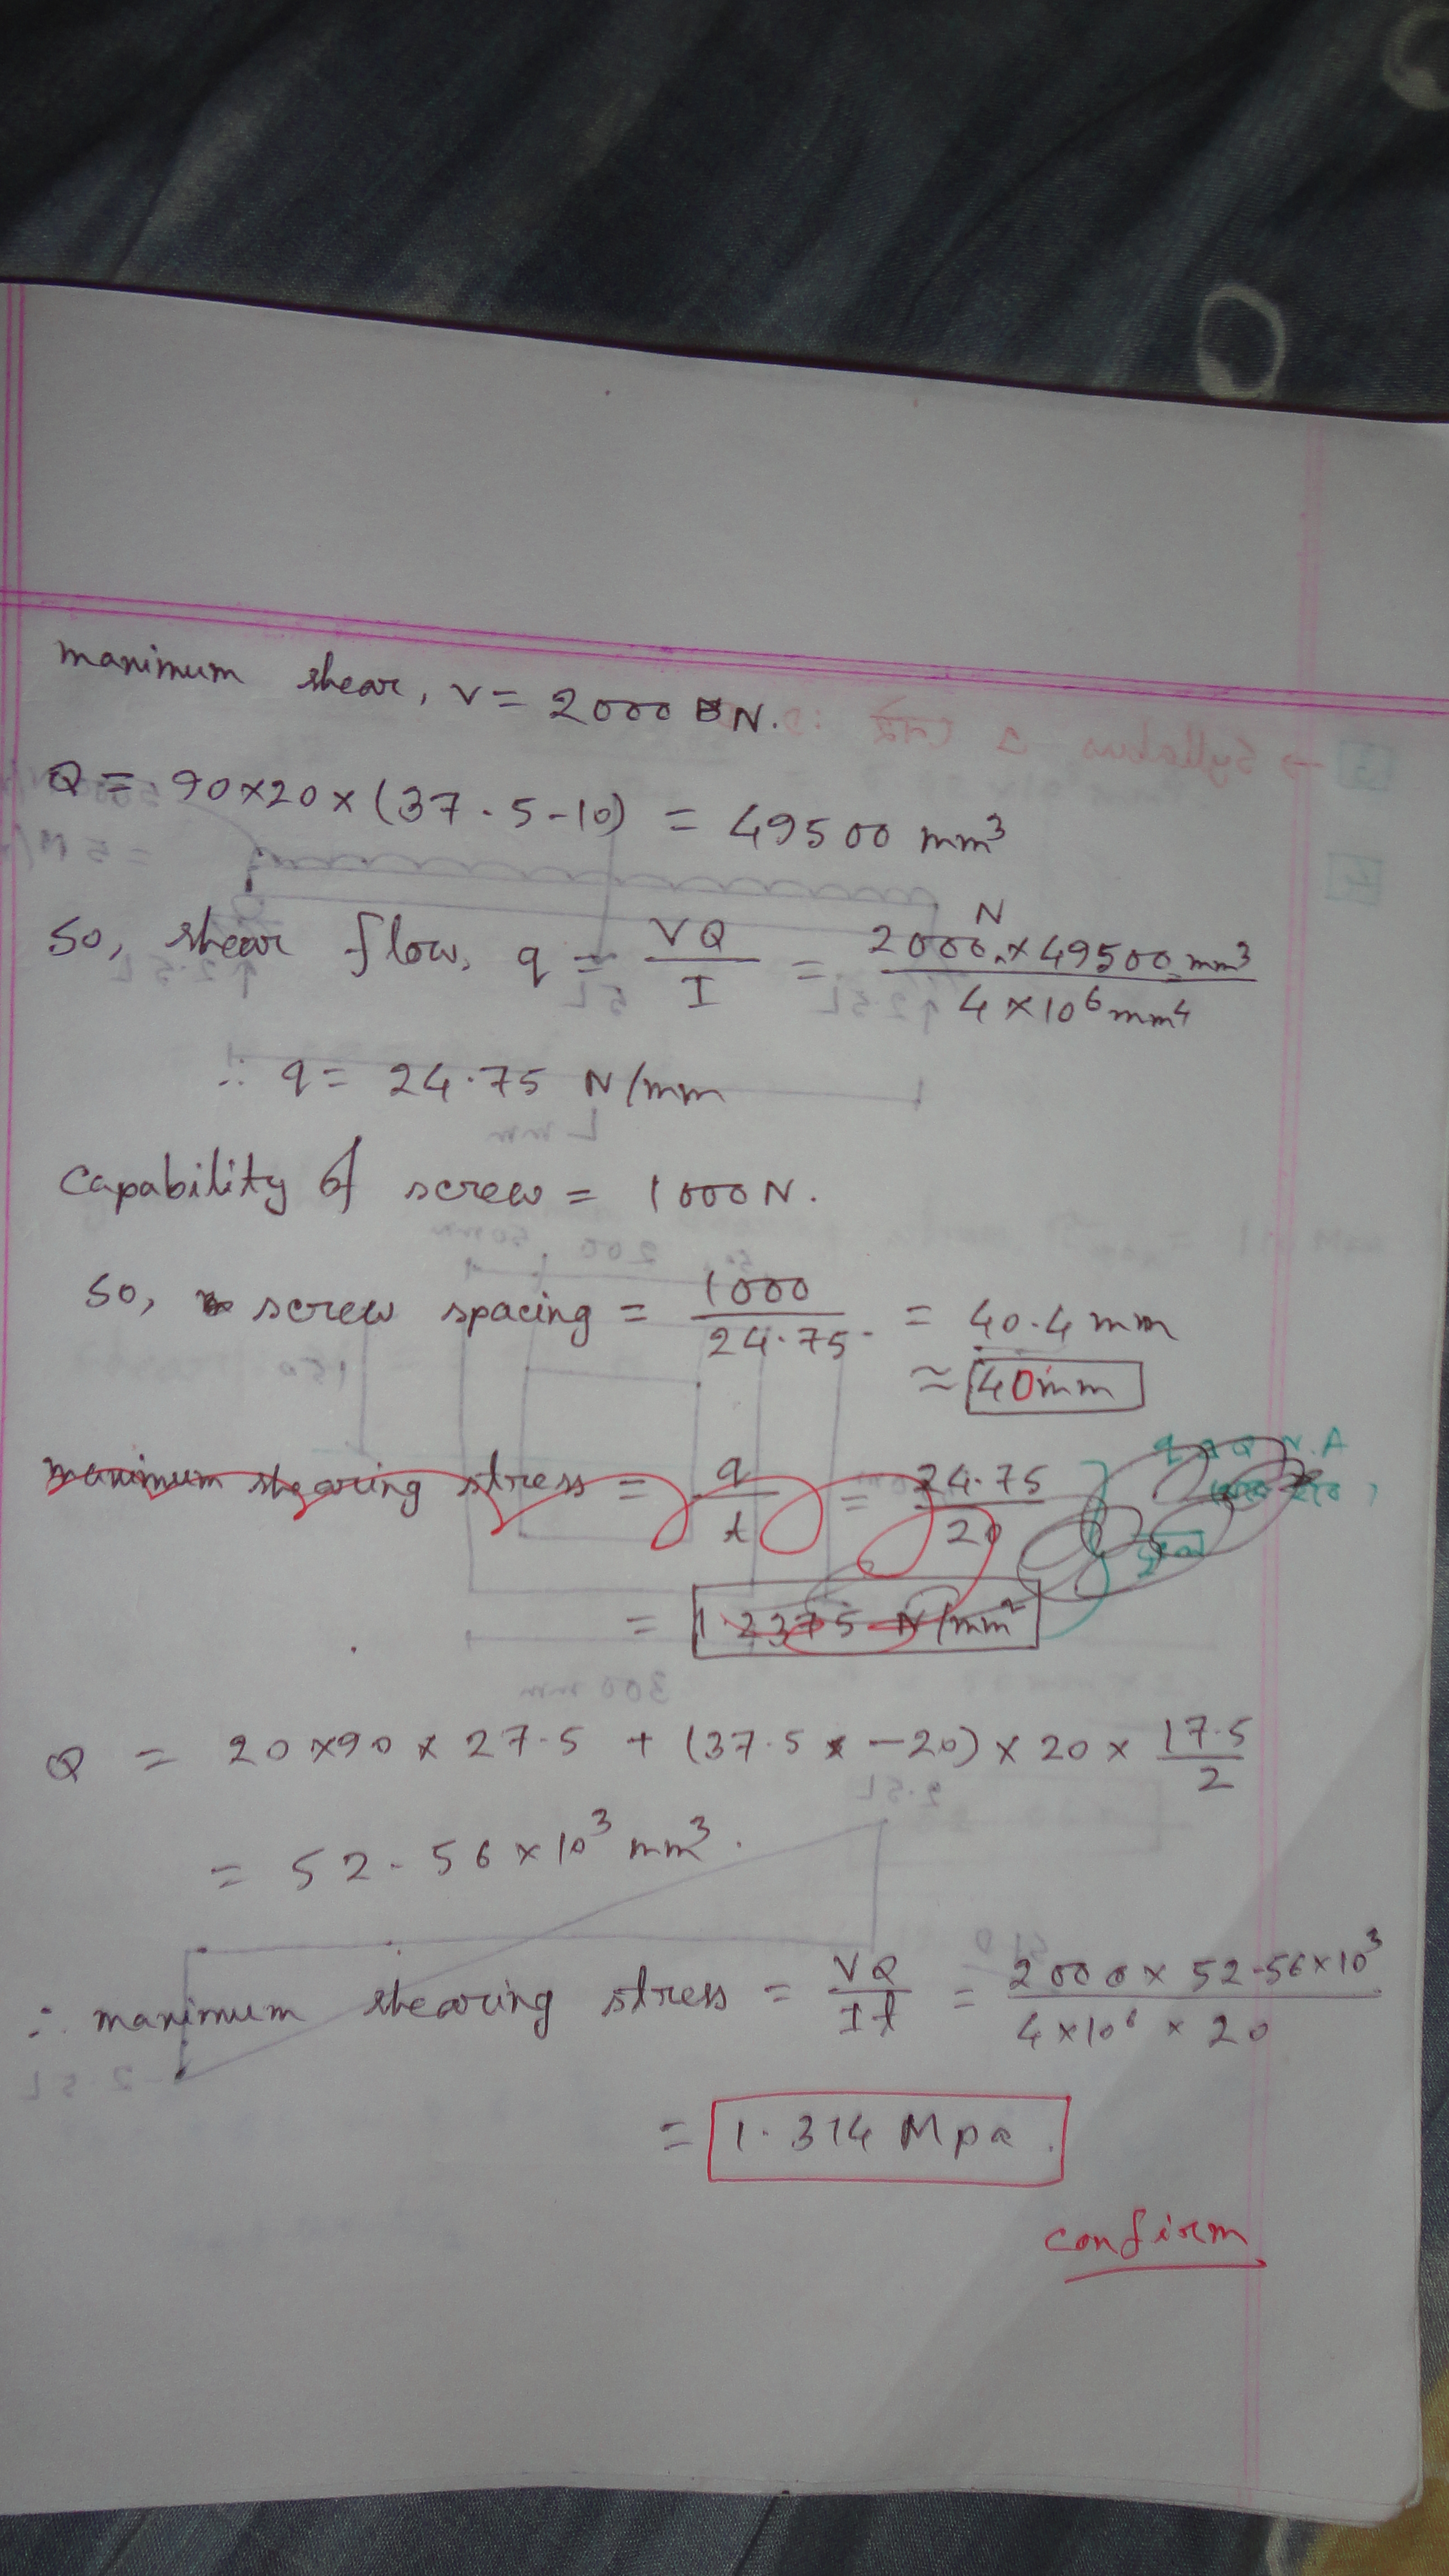 manimum shear, V = 2000 N.
Q = 90×20×(37.5-10) = 49500 mm³
So, shear flow, q = VQ/I = 2000 N × 49500 mm³ / 4×10⁶ mm⁴
∴ q = 24.75 N/mm
Capability of screw = 1000N.
So, screw spacing = 1000/24.75 = 40.4 mm
≈ 40mm
manimum shearing stress = q/t = 24.75/20
= 1.2375 N/mm²
Q = 20×90×27.5 + (37.5-20)×20×17.5/2
= 52.56×10³ mm³.
∴ manimum shearing stress = VQ/It = 2000×52.56×10³ / 4×10⁶×20
= 1.314 Mpa.
confirm